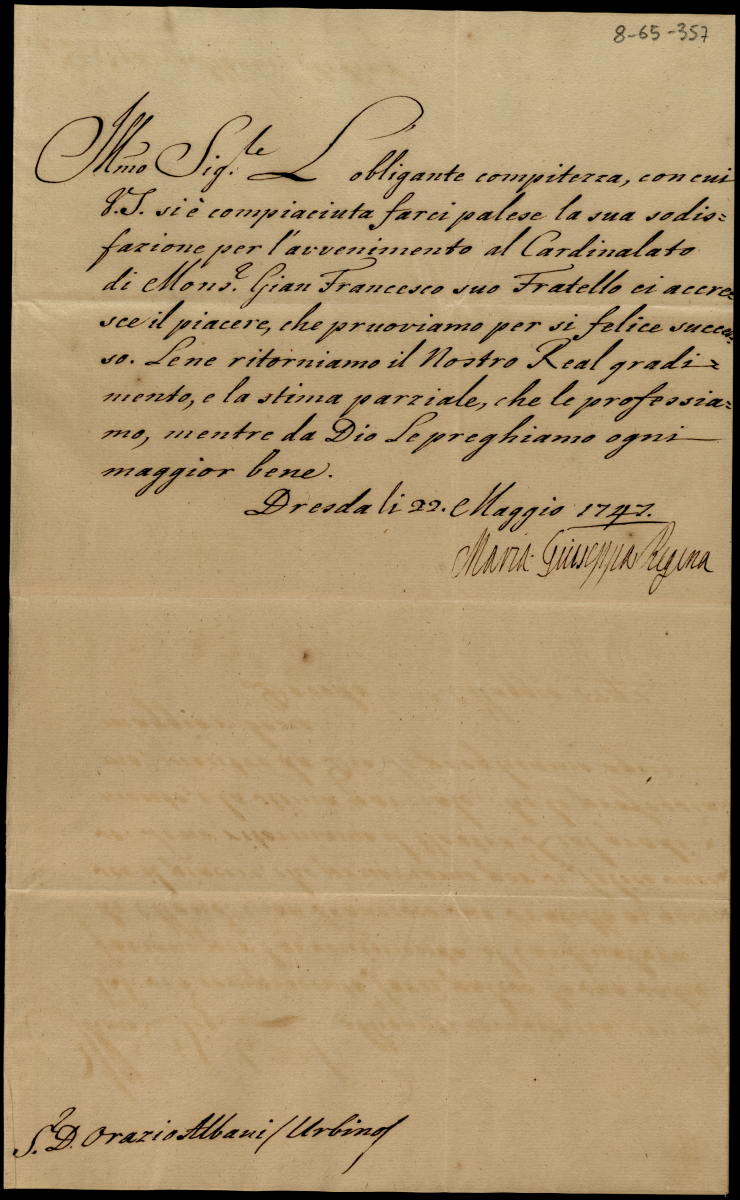 8-65-357
Illmo Sig.le L'obligante compitezza, con cui
V.S. si è compiaciuta farci palese la sua sodis=
fazione per l'avvenimento al Cardinalato
di Mons.r Gian Francesco suo Fratello ci accre=
sce il piacere, che pruoviamo per si felice succes=
so. Le ne ritorniamo il Nostro Real gradi=
mento, e la stima parziale, che le professia=
mo, mentre da Dio Le preghiamo ogni
maggior bene.
Dresda li 22. Maggio 1747.
Maria Giuseppa Regina
S.r D. Orazio Albani /Urbino/